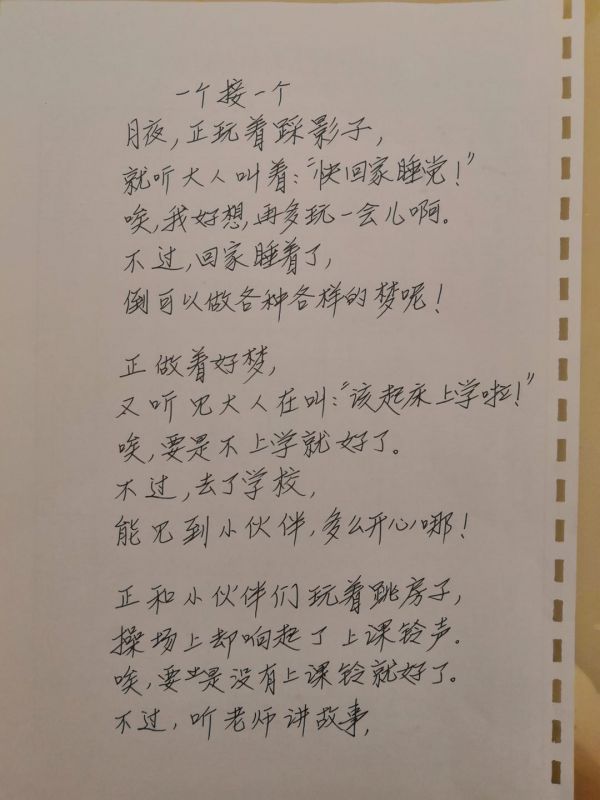 一个接一个
月夜，正玩着踩影子，
就听大人叫着：“快回家睡觉！”
唉，我好想，再多玩一会儿啊。
不过，回家睡着了，
倒可以做各种各样的梦呢！
正做着好梦，
又听见大人在叫：“该起床上学啦！”
唉，要是不上学就好了。
不过，去了学校，
能见到小伙伴，多么开心哪！
正和小伙伴们玩着跳房子，
操场上却响起了上课铃声。
唉，要是没有上课铃就好了。
不过，听老师讲故事，